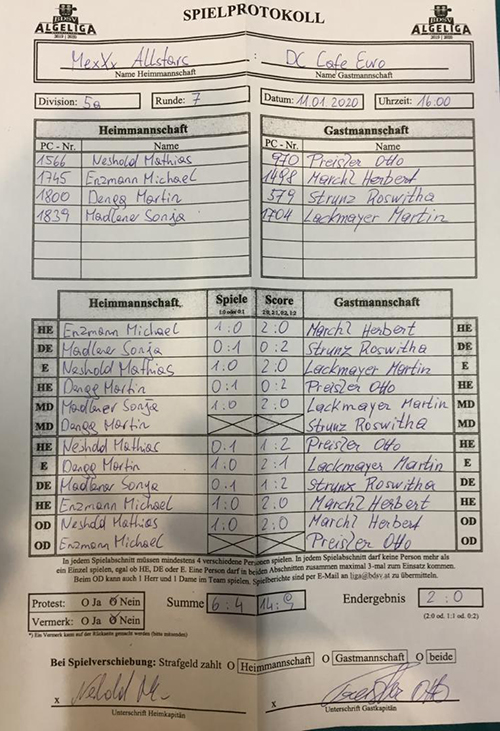 BDSV
ALGELIGA
2019 | 2020
SPIELPROTOKOLL
BDSV
ALGELIGA
2019 | 2020
MexXx Allstars : DC Cafe Euro
Name Heimmannschaft Name Gastmannschaft
Division: 5a Runde: 7 Datum: 11.01.2020 Uhrzeit: 16.00
Heimmannschaft Gastmannschaft
PC - Nr. Name PC - Nr. Name
1566 Neshold Mathias 970 Preisler Otto
1745 Enzmann Michael 1498 Marchl Herbert
1800 Dengg Martin 579 Strunz Roswitha
1839 Madlener Sonja 1704 Lackmayer Martin
Heimmannschaft Spiele Score Gastmannschaft
1:0 oder 0:1 2:0, 2:1, 0:2, 1:2
HE Enzmann Michael 1:0 2:0 Marchl Herbert HE
DE Madlener Sonja 0:1 0:2 Strunz Roswitha DE
E Neshold Mathias 1:0 2:0 Lackmayer Martin E
HE Dengg Martin 0:1 0:2 Preisler Otto HE
MD Madlener Sonja 1:0 2:0 Lackmayer Martin MD
MD Dengg Martin Strunz Roswitha MD
HE Neshold Mathias 0:1 1:2 Preisler Otto HE
E Dengg Martin 1:0 2:1 Lackmayer Martin E
DE Madlener Sonja 0:1 1:2 Strunz Roswitha DE
HE Enzmann Michael 1:0 2:0 Marchl Herbert HE
OD Neshold Mathias 1:0 2:0 Marchl Herbert OD
OD Enzmann Michael Preisler Otto OD
In jedem Spielabschnitt müssen mindestens 4 verschiedene Personen spielen. In jedem Spielabschnitt darf keine Person mehr als
ein Einzel spielen, egal ob HE, DE oder E. Eine Person darf in beiden Abschnitten zusammen maximal 3-mal zum Einsatz kommen.
Beim OD kann auch 1 Herr und 1 Dame im Team spielen. Spielberichte sind per E-Mail an liga@bdsv.at zu übermitteln.
Protest: O Ja O Nein Summe 6:4 14:9 Endergebnis 2:0
Vermerk: O Ja O Nein (2:0 od. 1:1 od. 0:2)
*) Ein Vermerk kann auf der Rückseite gemacht werden (bitte ankreuzen)
Bei Spielverschiebung: Strafgeld zahlt O Heimmannschaft O Gastmannschaft O beide
x x
Unterschrift Heimkapitän Unterschrift Gastkapitän